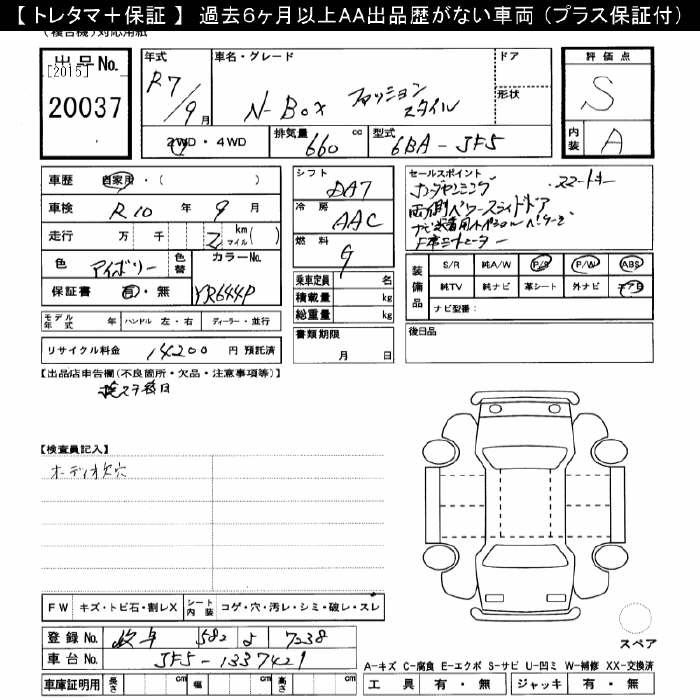 【 トレタマ＋保証 】 過去６ヶ月以上ＡＡ出品歴がない車両（プラス保証付）
(複合機)対応用紙
出品No.
[2015]
20037
年式
R7/9月
車名・グレード
N-Box ファッションスタイル
ドア
形状
評価点
S
内装
A
2WD・4WD
排気量 660 cc
型式 6BA-JF5
車歴 自家用・( )
車検 R10 年 9 月
走行 万 千 2 km マイル( )
色 アイボリー 色替
カラーNo.
YR644P
保証書 有・無
シフト
DA7
冷房
AAC
燃料
G
乗車定員 名
積載量 kg
総重量 kg
セールスポイント
ホンダセンシング
両側パワースライドドア
ナビ装着用スペシャルパッケージ
装備品
S/R 純A/W P/S P/W ABS
純TV 純ナビ 革シート 外ナビ エアB
ナビ型番：
モデル年式 年 ハンドル 左・右 ディーラー・並行
書類期限
月 日
後日品
リサイクル料金 14200 円 預託済
【出品店申告欄(不良箇所・欠品・注意事項等)】
【検査員記入】
オーディオ欠穴
FW キズ・トビ石・割レX シート内装 コゲ・穴・汚レ・シミ・破レ・スレ
登録No. 岐阜 582 よ 7238
車台No. JF5-1337421
車庫証明用 長さ cm 幅 cm 高さ cm
スペア
A-キズ C-腐食 E-エクボ S-サビ U-凹ミ W-補修 XX-交換済
工具 有・無 ジャッキ 有・無